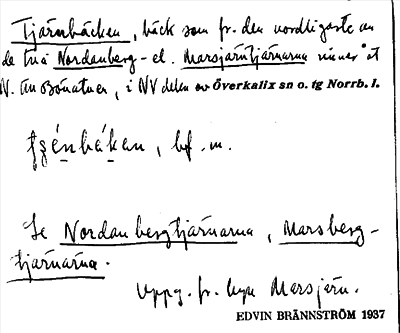 Tjärnbäcken, bäck som fr. den nordligaste av
de tre Nordanberg- el. Marsjärntjärnarna rinner åt
N. till Bönatuer, i NV delen av Överkalix sn o. tg Norrb. l.
bf. m.
Se Nordanbergtjärnarna, Marsberg-
tjärnarna.
Uppg. fr. byn Marsjärn.
EDVIN BRÄNNSTRÖM 1937